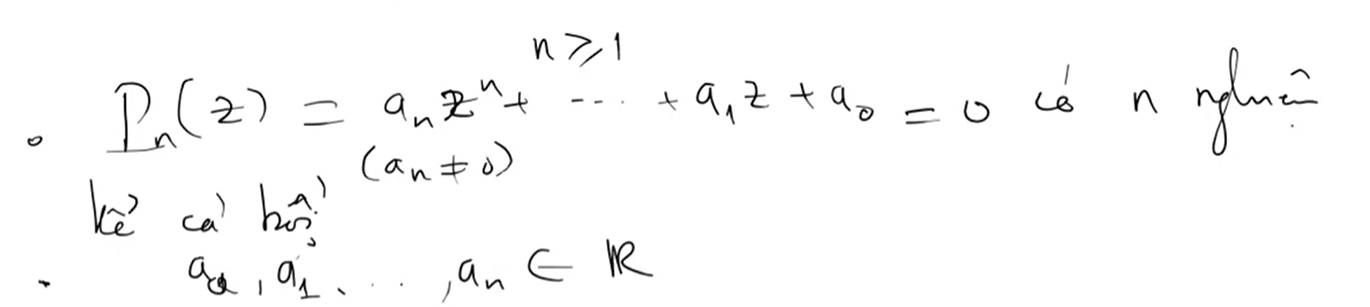 n ⩾ 1
• Pₙ(z) = aₙzⁿ + --- + a₁z + a₀ = 0 có n nghiệm
(aₙ ≠ 0)
kể cả bội
• a₀, a₁, ..., aₙ ∈ ℝ